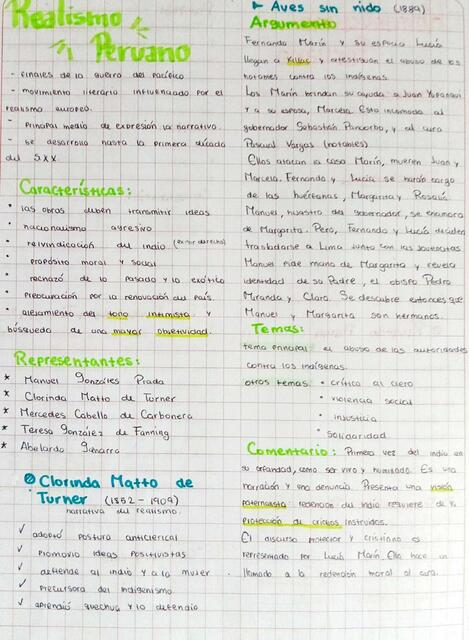 Realismo
Peruano
- finales de la guerra del pacífico
- movimiento literario influenciado por el
realismo europeo.
- principal medio de expresión la narrativa.
- se desarrolló hasta la primera década
del SXX.
Características:
• las obras deben transmitir ideas
• nacionalismo agresivo
• reivindicación del indio (exigir derecho)
• propósito moral y social
• rechazo de lo pasado y lo exótico
• preocupación por la renovación del país.
• alejamiento del tono intimista y
búsqueda de una mayor objetividad.
Representantes:
* Manuel Gonzáles Prada
* Clorinda Matto de Turner
* Mercedes Cabello de Carbonera
* Teresa González de Fanning
* Abelardo Gamarra
Clorinda Matto de
Turner (1852 - 1909)
narrativa del realismo.
✓ adoptó postura anticlerical
✓ promovio ideas positivistas
✓ defiende al indio y a la mujer.
✓ precursora del indigenismo
✓ aprendió quechua y lo defendio
► Aves sin nido (1889)
Argumento
Fernando Marín y su esposa Lucía
llegan a Killac y atestiguan el abuso de los
notables contra los indígenas.
Los Marín brindan su ayuda a Juan Yupanqui
y a su esposa, Marcela. Esto incomoda al
gobernador Sebastián Pancorbo, y al cura
Pascual Vargas (notables)
Ellos atacan la casa Marín, mueren Juan y
Marcela. Fernando y Lucía se harán cargo
de las huérfanas, Margarita y Rosalía
Manuel, hijastro del gobernador, se enamora
de Margarita. Pero, Fernando y Lucía deciden
trasladarse a Lima junto con las
Manuel pide mano de Margarita y revela
identidad de su Padre, el obispo Pedro
Miranda y Claro. Se descubre entonces que
Manuel y Margarita son hermanos.
Temas:
tema principal: el abuso de las autoridades
contra los indígenas.
otros temas: • crítica al clero
• violencia social
• injusticia
• solidaridad
Comentario: Primera vez del indio en
su como ser vivo y humillado. Es una
narración y una denuncia. Presenta una visión
paternalista redención del indio requiere de la
protección de criollos instruidos.
El discurso protector y cristiano es
representado por Lucía Marín. Ella hace un
llamado a la redención moral al cura.